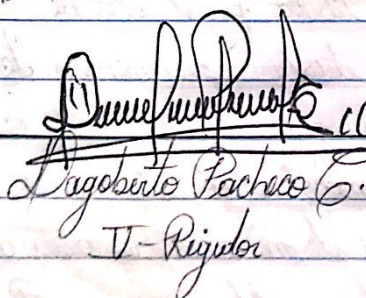 Dagoberto Pacheco C.
IV - Regidor